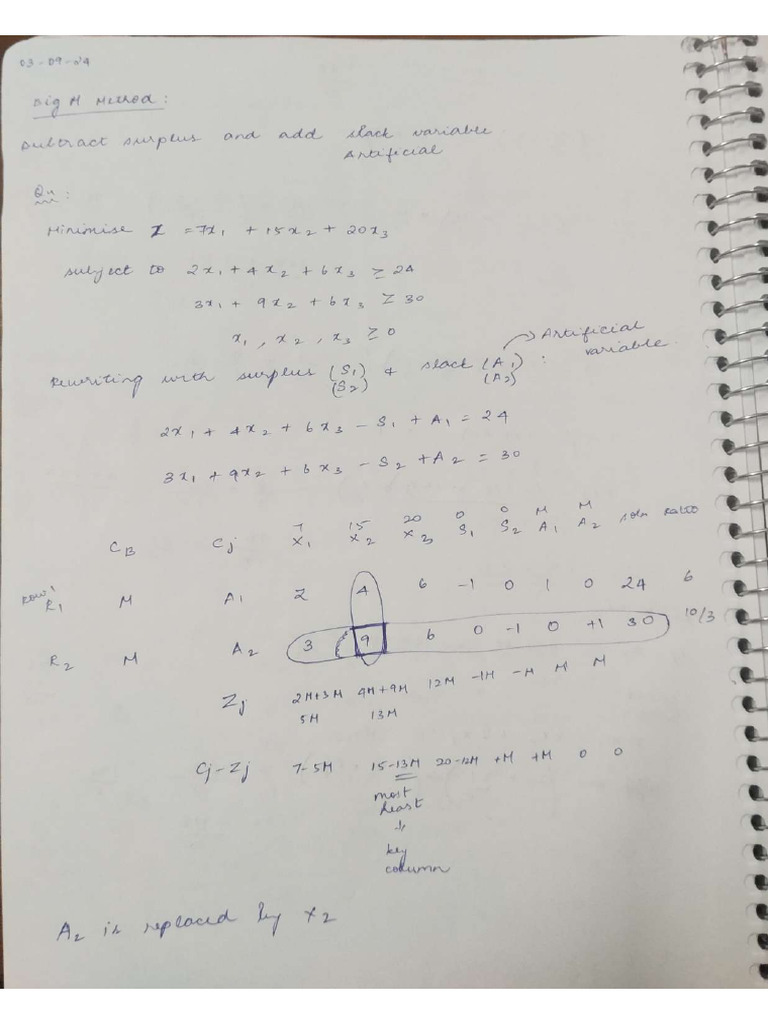 03-09-24
Big M Method:
Subtract surplus and add slack variable
Artificial
Qu:
Minimise Z = 7x₁ + 15x₂ + 20x₃
subject to 2x₁ + 4x₂ + 6x₃ ≥ 24
3x₁ + 9x₂ + 6x₃ ≥ 30
x₁, x₂, x₃ ≥ 0
→ Artificial variable
Rewriting with surplus (S₁) & slack (A₁) :
(S₂) (A₂)
2x₁ + 4x₂ + 6x₃ - S₁ + A₁ = 24
3x₁ + 9x₂ + 6x₃ - S₂ + A₂ = 30
7 15 20 0 0 M M
C_B Cj x₁ x₂ x₃ S₁ S₂ A₁ A₂ soln Ratio
Row 1
R₁ M A₁ 2 4 6 -1 0 1 0 24 6
R₂ M A₂ 3 9 6 0 -1 0 +1 30 10/3
Zj 2M+3M 4M+9M 12M -1M -M M M
5M 13M
Cj-Zj 7-5M 15-13M 20-12M +M +M 0 0
most
least
↓
key
column
A₂ is replaced by x₂